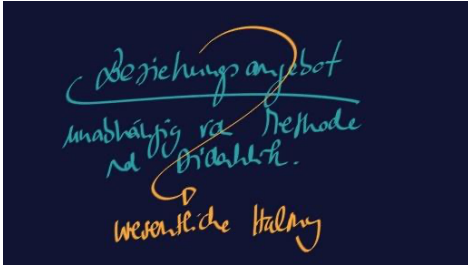 Beziehungsangebot
unabhängig von Methode
und Didaktik.
wesentliche Haltung